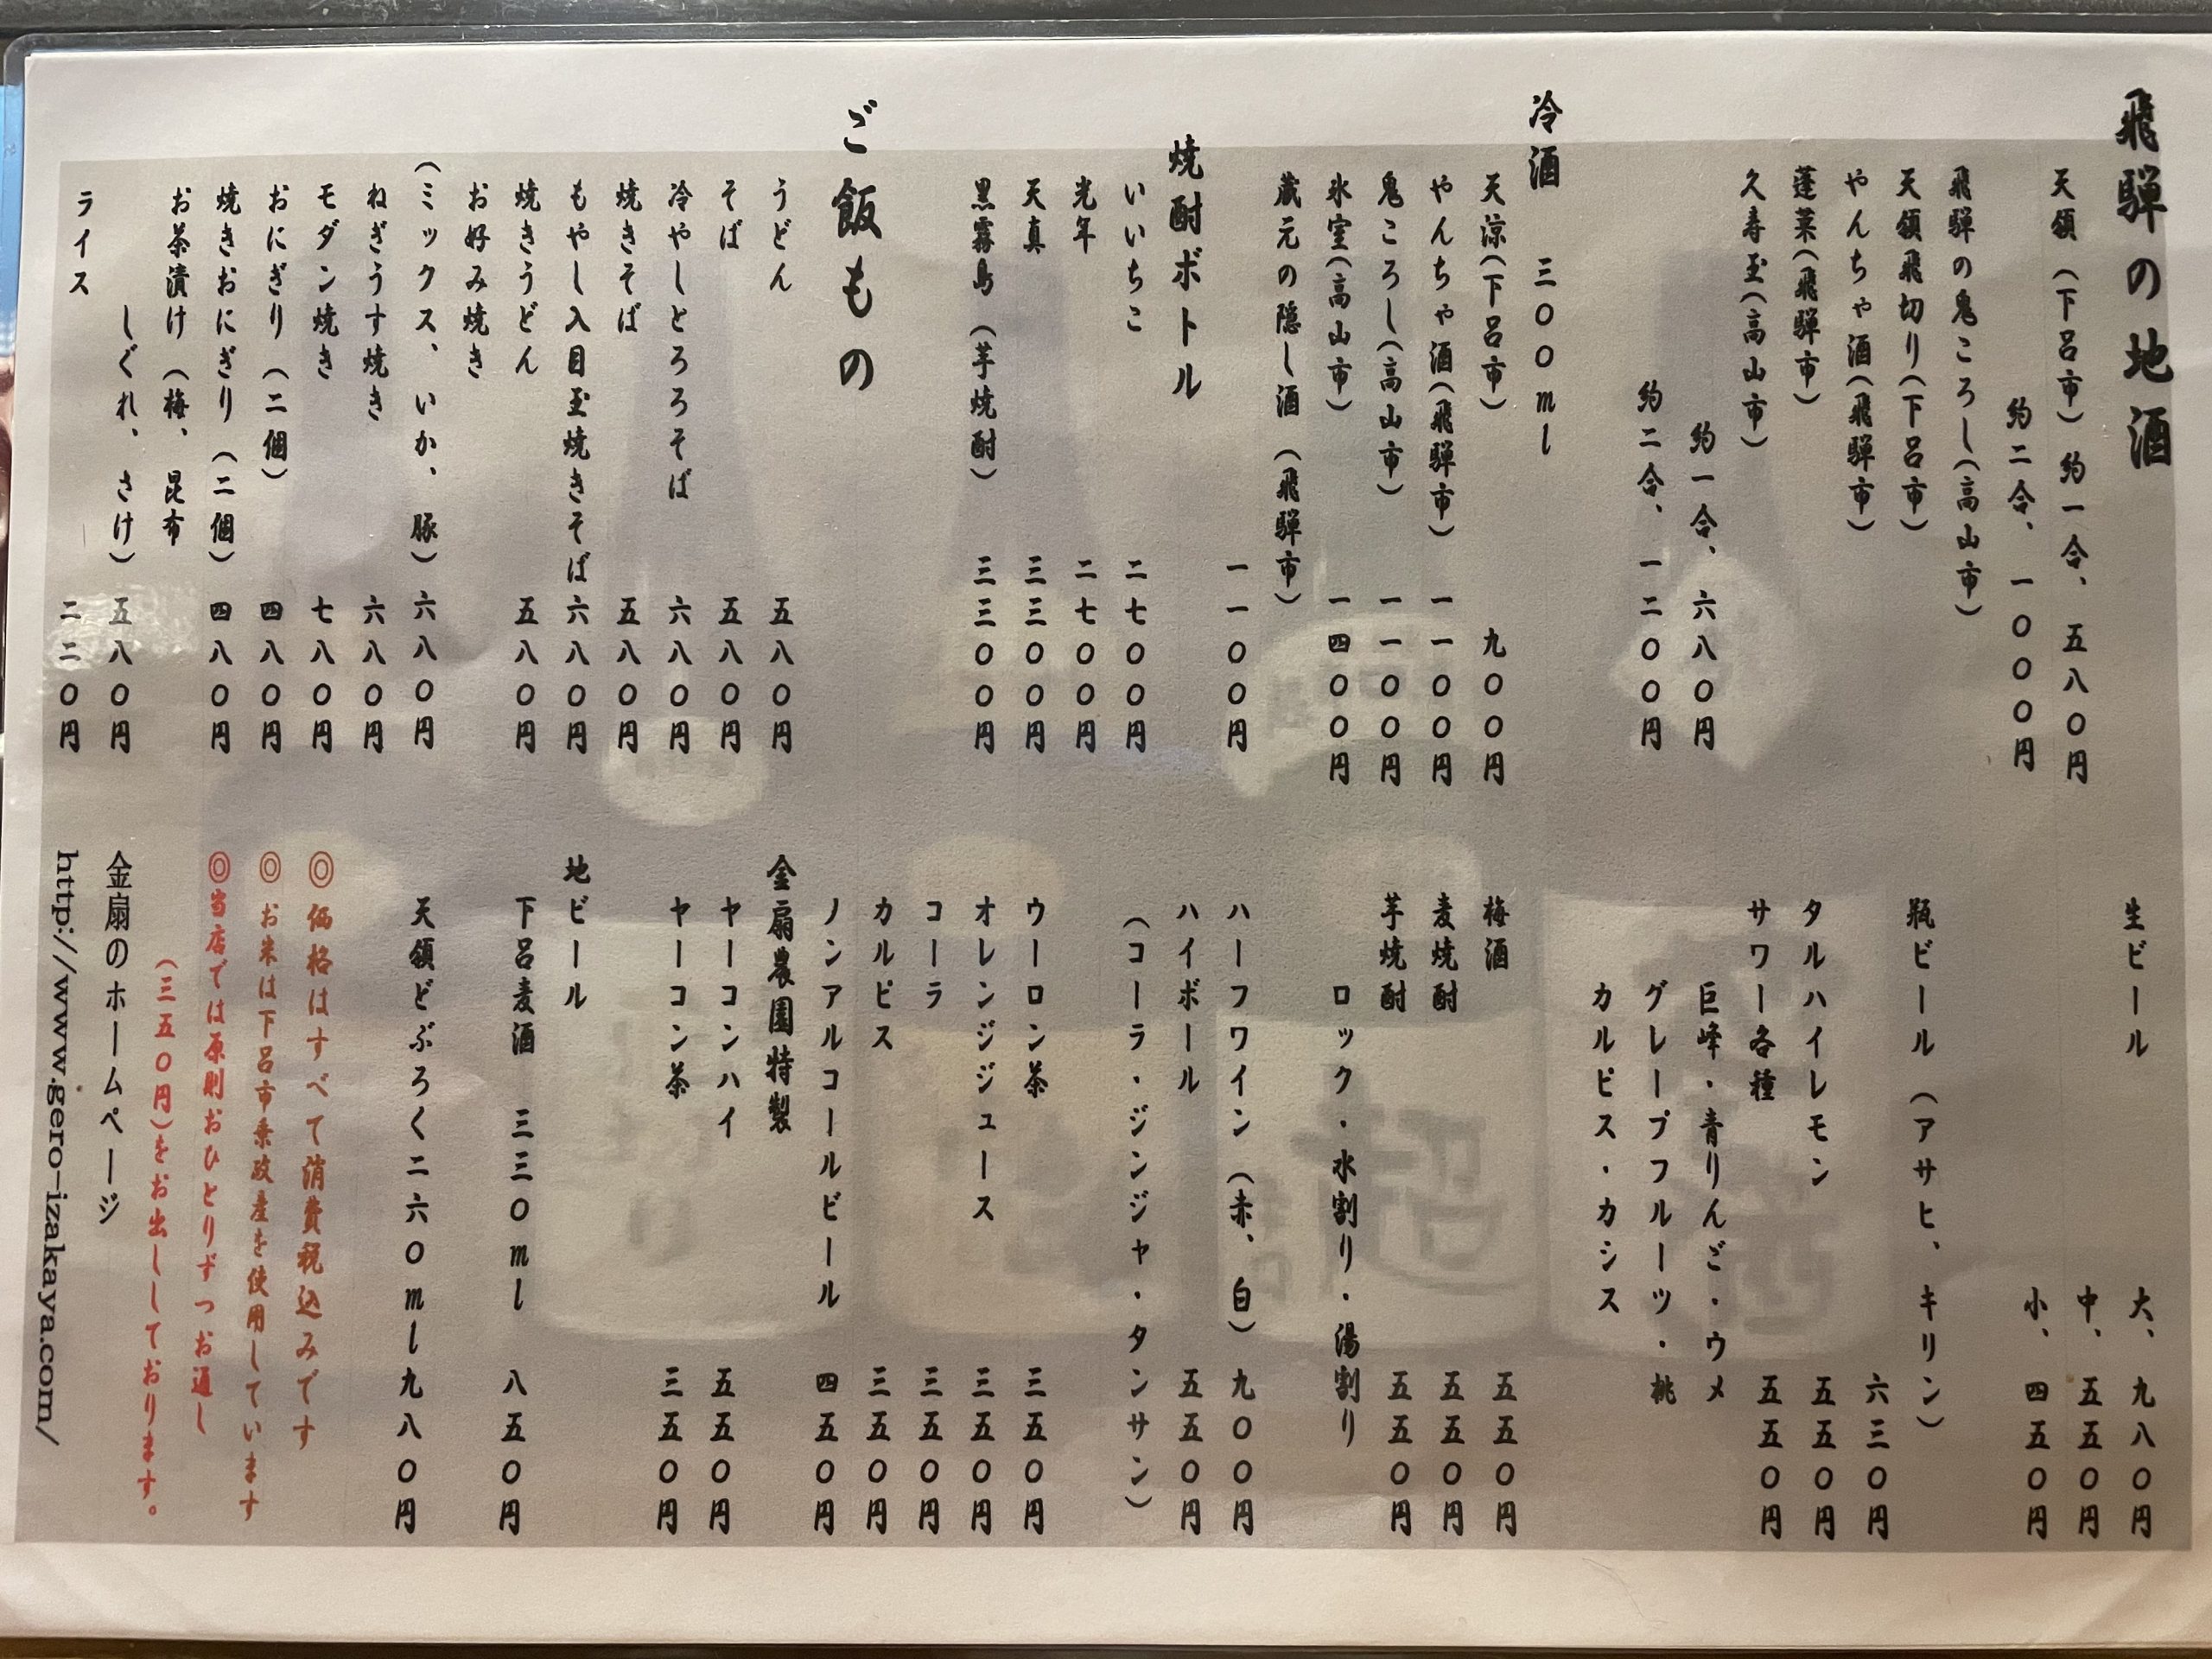 飛騨の地酒
天領（下呂市）約一合、五八〇円
約二合、一〇〇〇円
飛騨の鬼ころし（高山市）
天領飛切り（下呂市）
やんちゃ酒（飛騨市）
蓬莱（飛騨市）
久寿玉（高山市）
約一合、六八〇円
約二合、一二〇〇円
冷酒　三〇〇ml
天涼（下呂市）　九〇〇円
やんちゃ酒（飛騨市）　一一〇〇円
鬼ころし（高山市）　一一〇〇円
氷室（高山市）　一四〇〇円
蔵元の隠し酒（飛騨市）
一一〇〇円
焼酎ボトル
いいちこ　二七〇〇円
光年　二七〇〇円
天真　三三〇〇円
黒霧島（芋焼酎）　三三〇〇円
ご飯もの
うどん　五八〇円
そば　五八〇円
冷やしとろろそば　六八〇円
焼きそば　五八〇円
もやし入目玉焼きそば　六八〇円
焼きうどん　五八〇円
お好み焼き
（ミックス、いか、豚）六八〇円
ねぎうす焼き　六八〇円
モダン焼き　七八〇円
おにぎり（二個）　四八〇円
焼きおにぎり（二個）　四八〇円
お茶漬け（梅、昆布
しぐれ、さけ）五八〇円
ライス　二二〇円
生ビール　大、九八〇円
中、五五〇円
小、四五〇円
瓶ビール（アサヒ、キリン）
六三〇円
タルハイレモン　五五〇円
サワー各種　五五〇円
巨峰・青りんご・ウメ
グレープフルーツ・桃
カルピス・カシス
梅酒　五五〇円
麦焼酎　五五〇円
芋焼酎　五五〇円
ロック・水割り・湯割り
ハーフワイン（赤、白）九〇〇円
ハイボール　五五〇円
（コーラ・ジンジャ・タンサン）
ウーロン茶　三五〇円
オレンジジュース　三五〇円
コーラ　三五〇円
カルピス　三五〇円
ノンアルコールビール　四五〇円
金扇農園特製
ヤーコンハイ　五五〇円
ヤーコン茶　三五〇円
地ビール
下呂麦酒　三三〇ml　八五〇円
天領どぶろく二六〇ml九八〇円
◎価格はすべて消費税込みです
◎お米は下呂市乗政産を使用しています
◎当店では原則おひとりずつお通し
（三五〇円）をお出ししております。
金扇のホームページ
http://www.gero-izakaya.com/